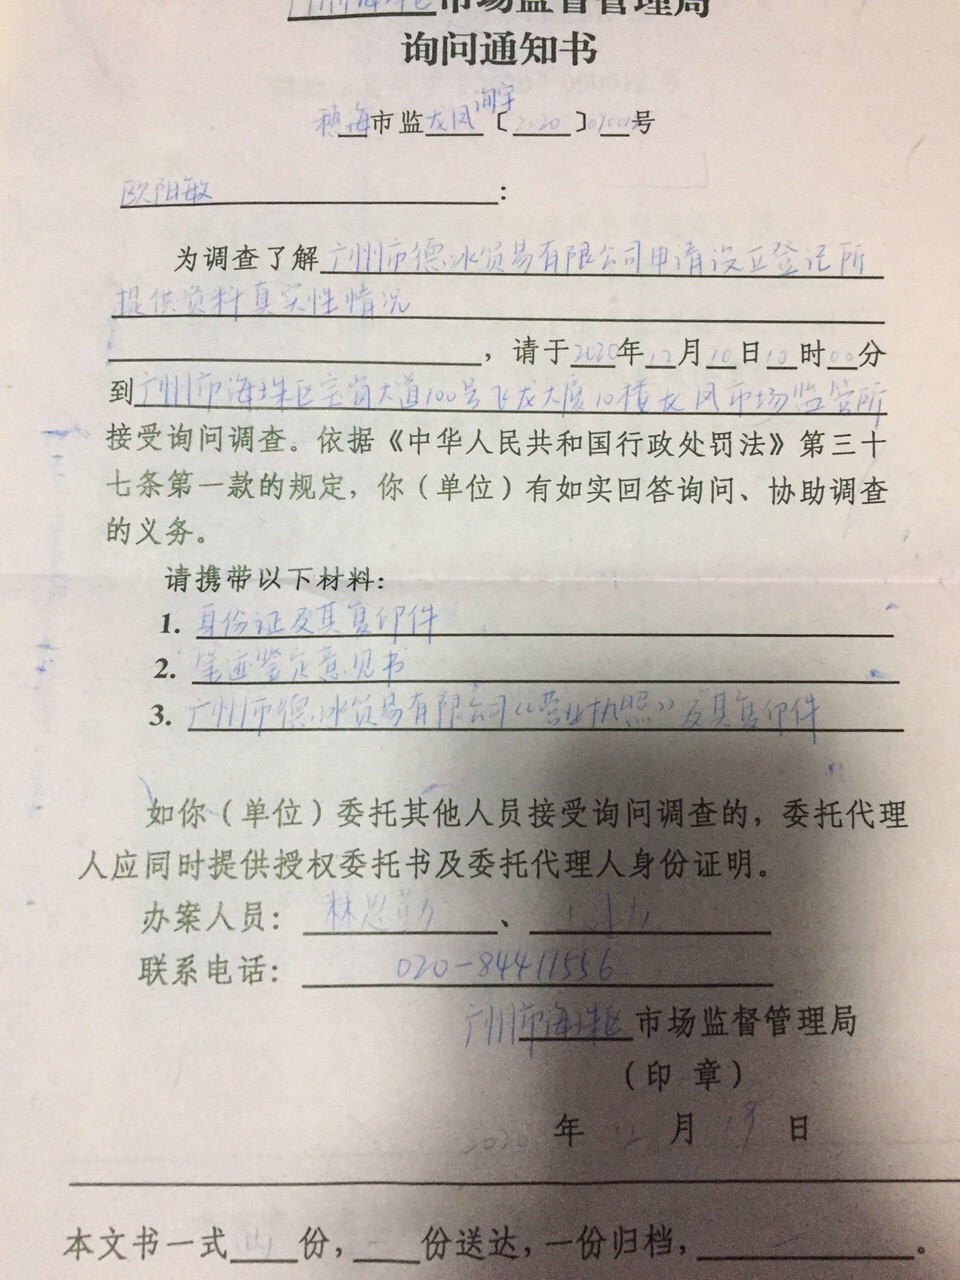 广州市海珠区市场监督管理局
询问通知书
穗海市监龙凤询字〔2020〕号
欧阳敏：
为调查了解广州市德冰贸易有限公司申请设立登记所
提供资料真实性情况
，请于2020年12月10日10时00分
到广州市海珠区宝岗大道100号飞龙大厦10楼龙凤市场监管所
接受询问调查。依据《中华人民共和国行政处罚法》第三十
七条第一款的规定，你（单位）有如实回答询问、协助调查
的义务。
请携带以下材料：
1. 身份证及其复印件
2. 笔迹鉴定意见书
3. 广州市德冰贸易有限公司《营业执照》及其复印件
如你（单位）委托其他人员接受询问调查的，委托代理
人应同时提供授权委托书及委托代理人身份证明。
办案人员：林思勤、
联系电话：020-84411556
广州市海珠区市场监督管理局
（印 章）
2020年12月日
本文书一式份，份送达，一份归档，。